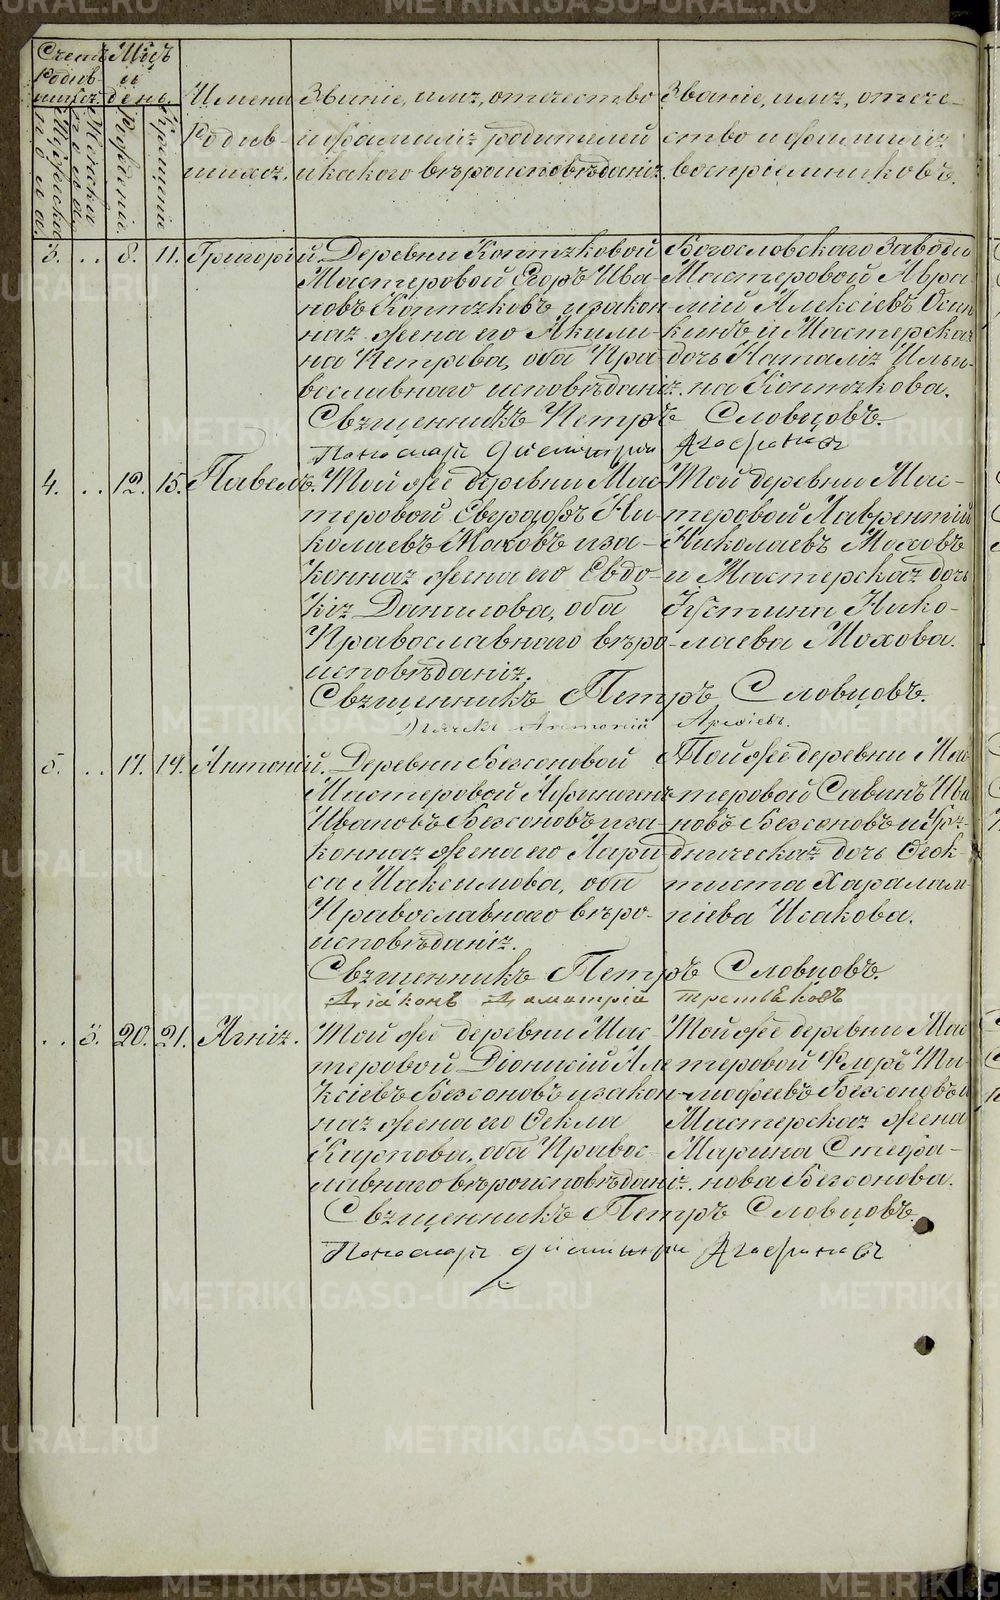 Счетъ Родившихся.
Мужеска пола.
Женска пола.
Мѣсяцъ и день.
Рожденіе.
Крещеніе
Имена Родив-
шихся.
Званіе, имя, отечество
и фамилія родителей
и какого вѣроисповѣданія.
Званіе, имя, отече-
ство и фамилія
воспріемниковъ.
3. .. 8. 11. Григорій.
Деревни Коптяковой
Мастеровой Егоръ Ива-
новъ Коптяковъ и закон
ная жена его Акили-
на Петрова, оба Пра-
вославнаго исповѣданія.
Богословскаго Завода
Мастеровой Авра-
мій Алексіевъ Осин
кинъ и Мастерская
дочь Наталія Ильи-
на Коптякова.
Священникъ Петръ Словцовъ.
Пономарь Димитрій
4. .. 12. 15. Павелъ.
Той же деревни Мас
теровой Евграфъ Ни-
колаевъ Моховъ и за-
конная жена его Евдо-
кія Данилова, оба
Православнаго вѣро-
исповѣданія.
Той деревни Мас-
теровой Лаврентій
Николаевъ Моховъ
и Мастерская дочь
Устинья Нико-
лаева Мохова.
Священникъ Петръ Словцовъ.
Дьячекъ Антоній Арефьевъ.
5. .. 17. 19. Антоній.
Деревни Безсоновой
Мастеровой Афиногенъ
Ивановъ Безсоновъ и за-
конная жена его Лари-
са Максимова, оба
Православнаго вѣро-
исповѣданія.
Той же деревни Мас
теровой Савинъ Ива
новъ Безсоновъ и Уря-
дническая дочь Феок-
тиста Харалам-
піева Исакова.
Священникъ Петръ Словцовъ.
Діаконъ Димитрій Третьяковъ
.. 3. 20. 21. Агнія.
Той же деревни Мас
теровой Діонисій Але
ксіевъ Безсоновъ и закон-
ная жена его Фекла
Карпова, оба Правос-
лавнаго вѣроисповѣданія.
Той же деревни Мас
теровой Флоръ Ти-
мофеевъ Безсоновъ и
Мастерская жена
Марина Стефа-
нова Безсонова.
Священникъ Петръ Словцовъ.
Пономарь Димитрій
METRIKI.GASO-URAL.RU